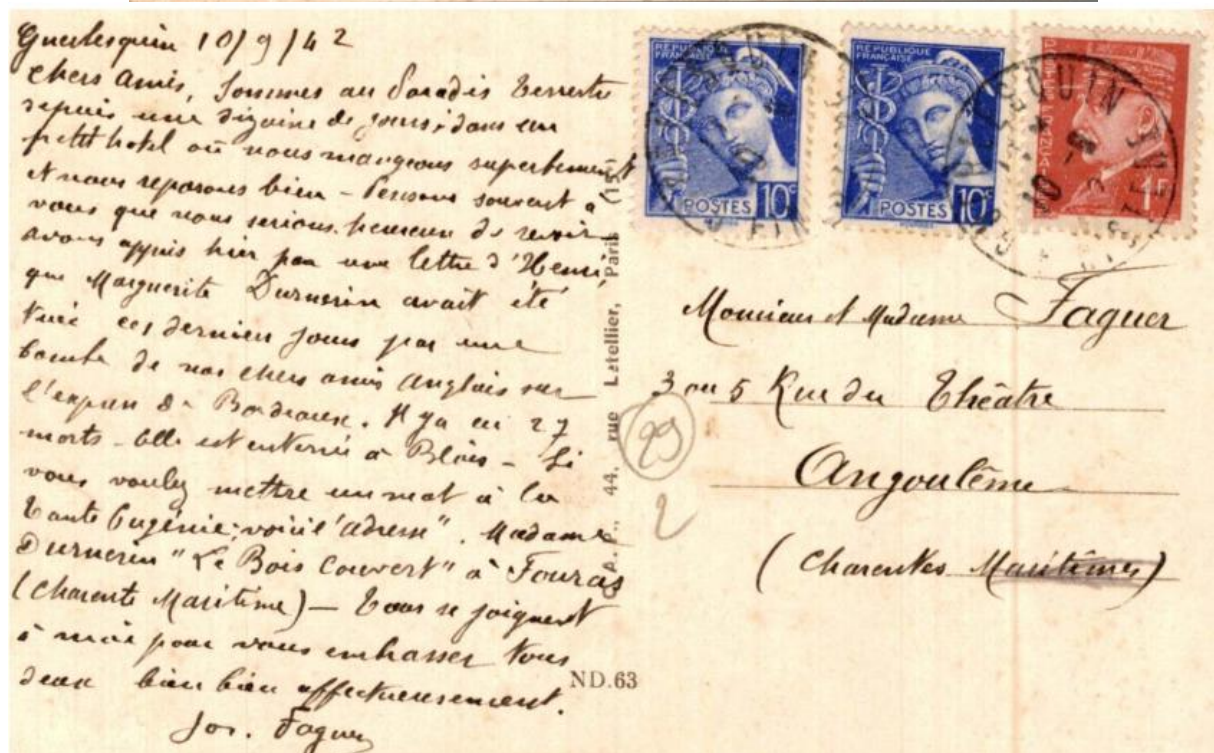 Guerlesquin 10/9/42
Chers Amis, Sommes au Paradis Terrestre
depuis une dizaine de jours, dans un
petit hotel où nous mangeons superbement
et nous reposons bien - Pensons souvent à
vous que nous serions heureux de revoir
avons appris hier par une lettre d'Henri,
que Marguerite Durnerin avait été
tuée ces derniers jours par une
bombe de nos chers amis Anglais sur
l'express de Bordeaux. Il y a eu 27
morts - Elle est enterrée à Blois - Si
vous voulez mettre un mot à la
Tante Eugénie, voici l'adresse". Madame
Durnerin "Le Bois Couvert" à Fouras
(Charente Maritime) - Tous se joignent
à moi pour vous embrasser tous
deux bien bien affectueusement.
Jos. Faguer
44, rue Letellier, Paris (15e)
ND.63
RÉPUBLIQUE
FRANÇAISE
POSTES 10c
RÉPUBLIQUE
FRANÇAISE
POSTES 10c
1F
GUERLESQUIN
FINISTERE
Monsieur et Madame Faguer
3 ou 5 Rue du Théâtre
Angoulême
(Charentes Maritimes)
29
2